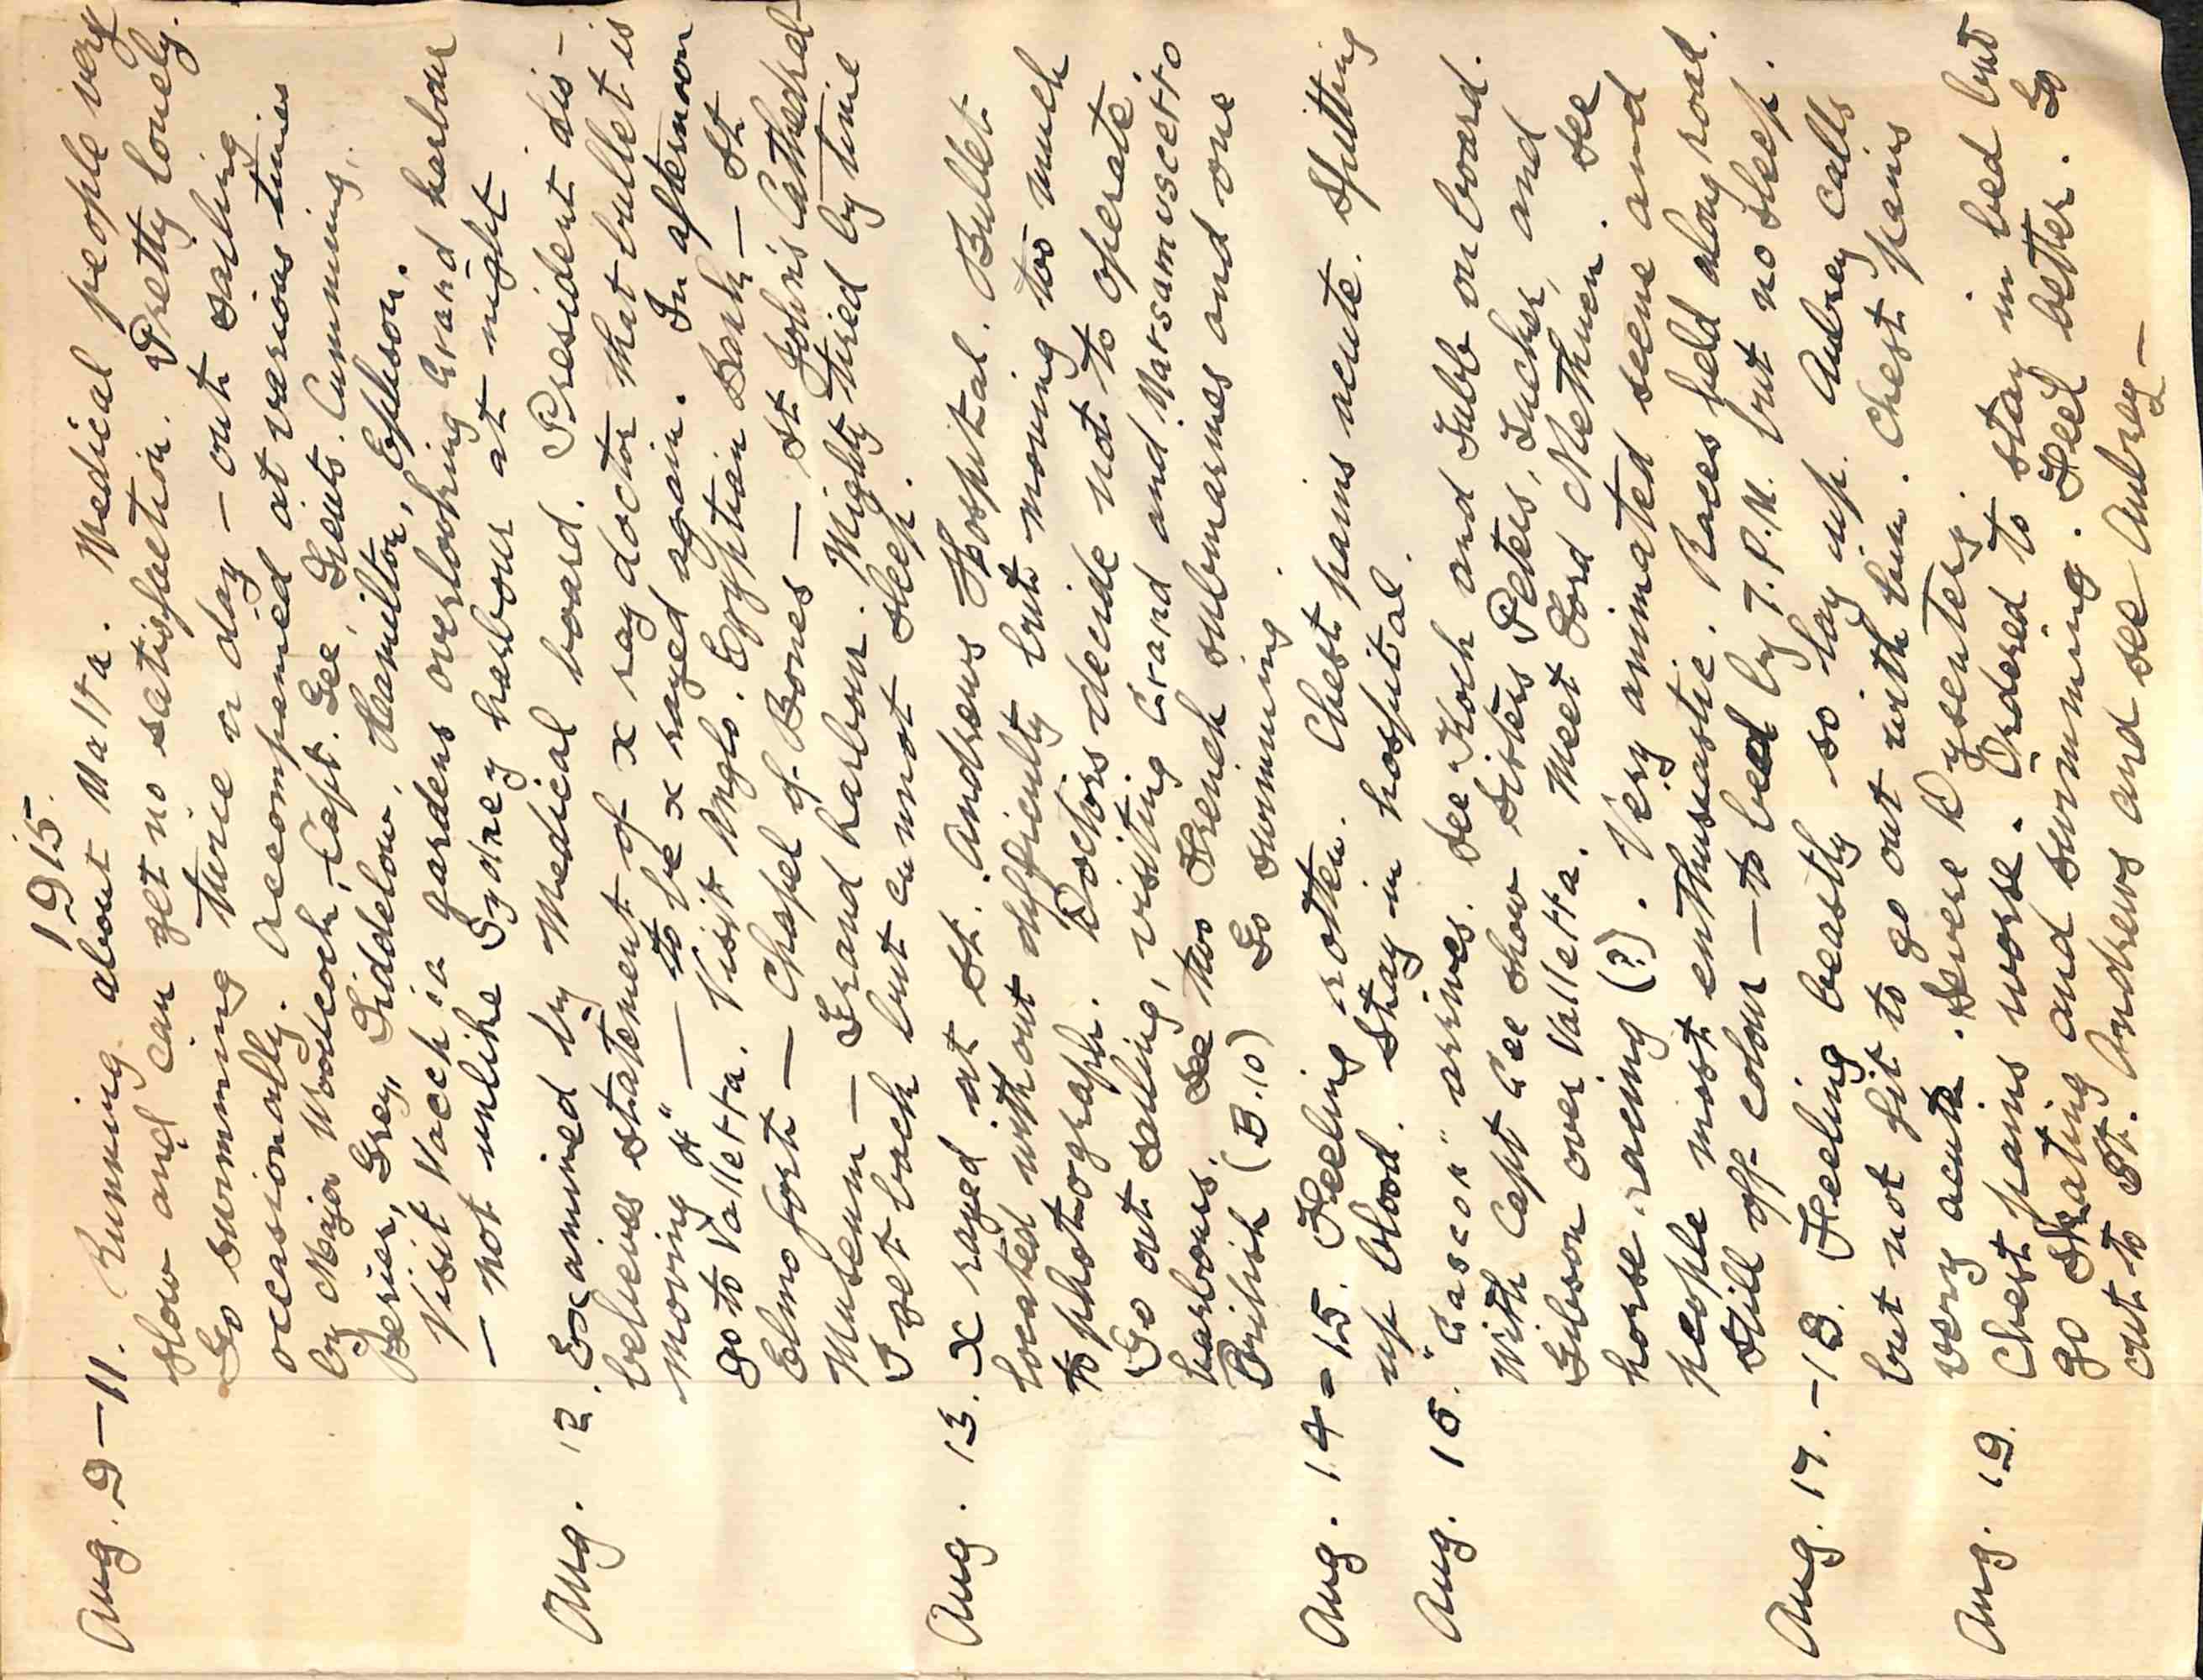 1915.
Aug. 9-11. Running about Malta. Medical people very
slow and can get no satisfaction. Pretty lonely.
Go swimming twice a day - out sailing
occasionally. Accompanied at various times
by Major Woodcock, Capt. Gee, Lieuts. Cumming,
Berier, Grey, Siddelow, Hamilton, Epleson.
Visit Vaccha gardens overlooking Grand harbour
- not unlike Sydney harbour at night.
Aug. 12. Examined by Medical board. President dis-
believes statement of x ray doctor that bullet is
moving - to be x rayed again. In afternoon
go to Valletta. Visit Anglo. Egyptian Bank - St
Elmo fort - Chapel of Bones - St John's Cathedral -
Museum - Grand harbour. Mighty tired by time
I get back but cannot sleep.
Aug. 13. X rayed at St. Andrews Hospital. Bullet
located without difficulty but moving too much
to photograph. Doctors decide not to operate.
Go out sailing, visiting Grand and Marsamuscetto
harbours. See two French submarines and one
British (B.10) Go swimming.
Aug. 14-15. Feeling rotten. Chest pains acute. Spitting
up blood. Stay in hospital.
Aug. 16. "Gascon" arrives. See Koch and Jubb on board.
With Capt Gee show Sisters Peters, Tucker, and
Gibson over Valletta. Meet Lord Methuen. See
horse racing (?). Very animated scene and
people most enthusiastic. Races held along road.
Still off colour - to bed by 7.P.M. but no sleep.
Aug. 17.-18. Feeling beastly so lay up. Aubrey calls
but not fit to go out with him. Chest pains
very acute. Severe Dysentery.
Aug. 19. Chest pains worse. Ordered to stay in bed but
go skating and swimming. Feel better. Go
out to St. Andrews and see Aubrey -